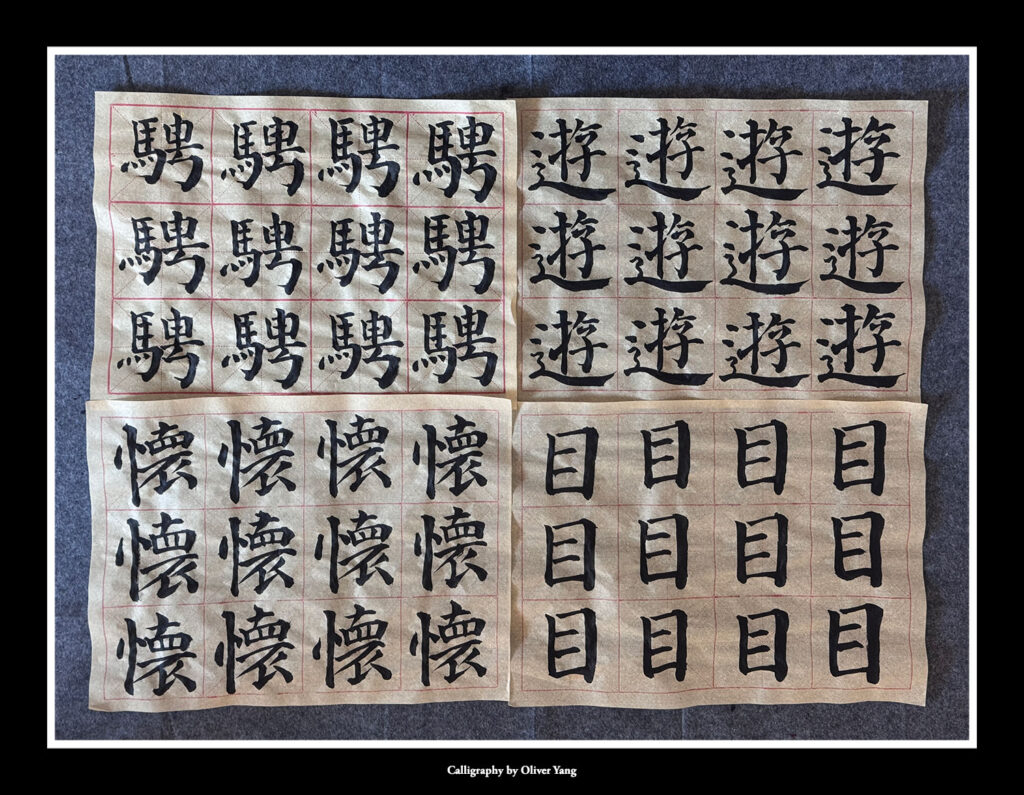 騁騁騁騁 遊遊遊遊
騁騁騁騁 遊遊遊遊
騁騁騁騁 遊遊遊遊
懷懷懷懷 目目目目
懷懷懷懷 目目目目
懷懷懷懷 目目目目
Calligraphy by Oliver Yang